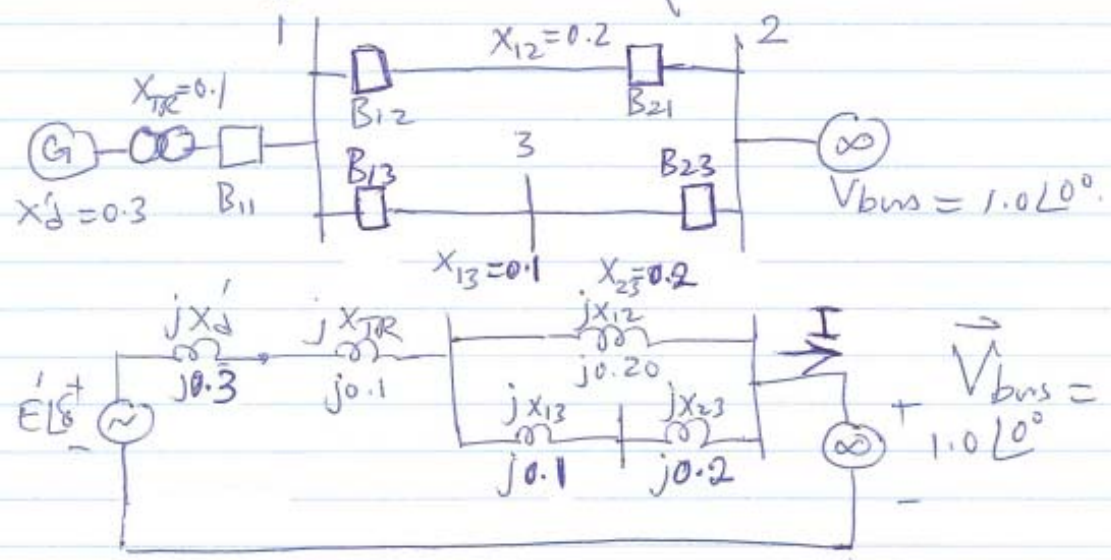 1 X12=0.2 2
XTR=0.1
B12 B21
G 3 ∞
B13 B23
X'd=0.3 B11 Vbus = 1.0∠0°.
X13=0.1 X23=0.2
jX'd jXTR jX12 I
j0.3 j0.1 j0.20 Vbus =
E'∠δ + jX13 jX23 + 1.0∠0°
- ~ ∞
j0.1 j0.2 -